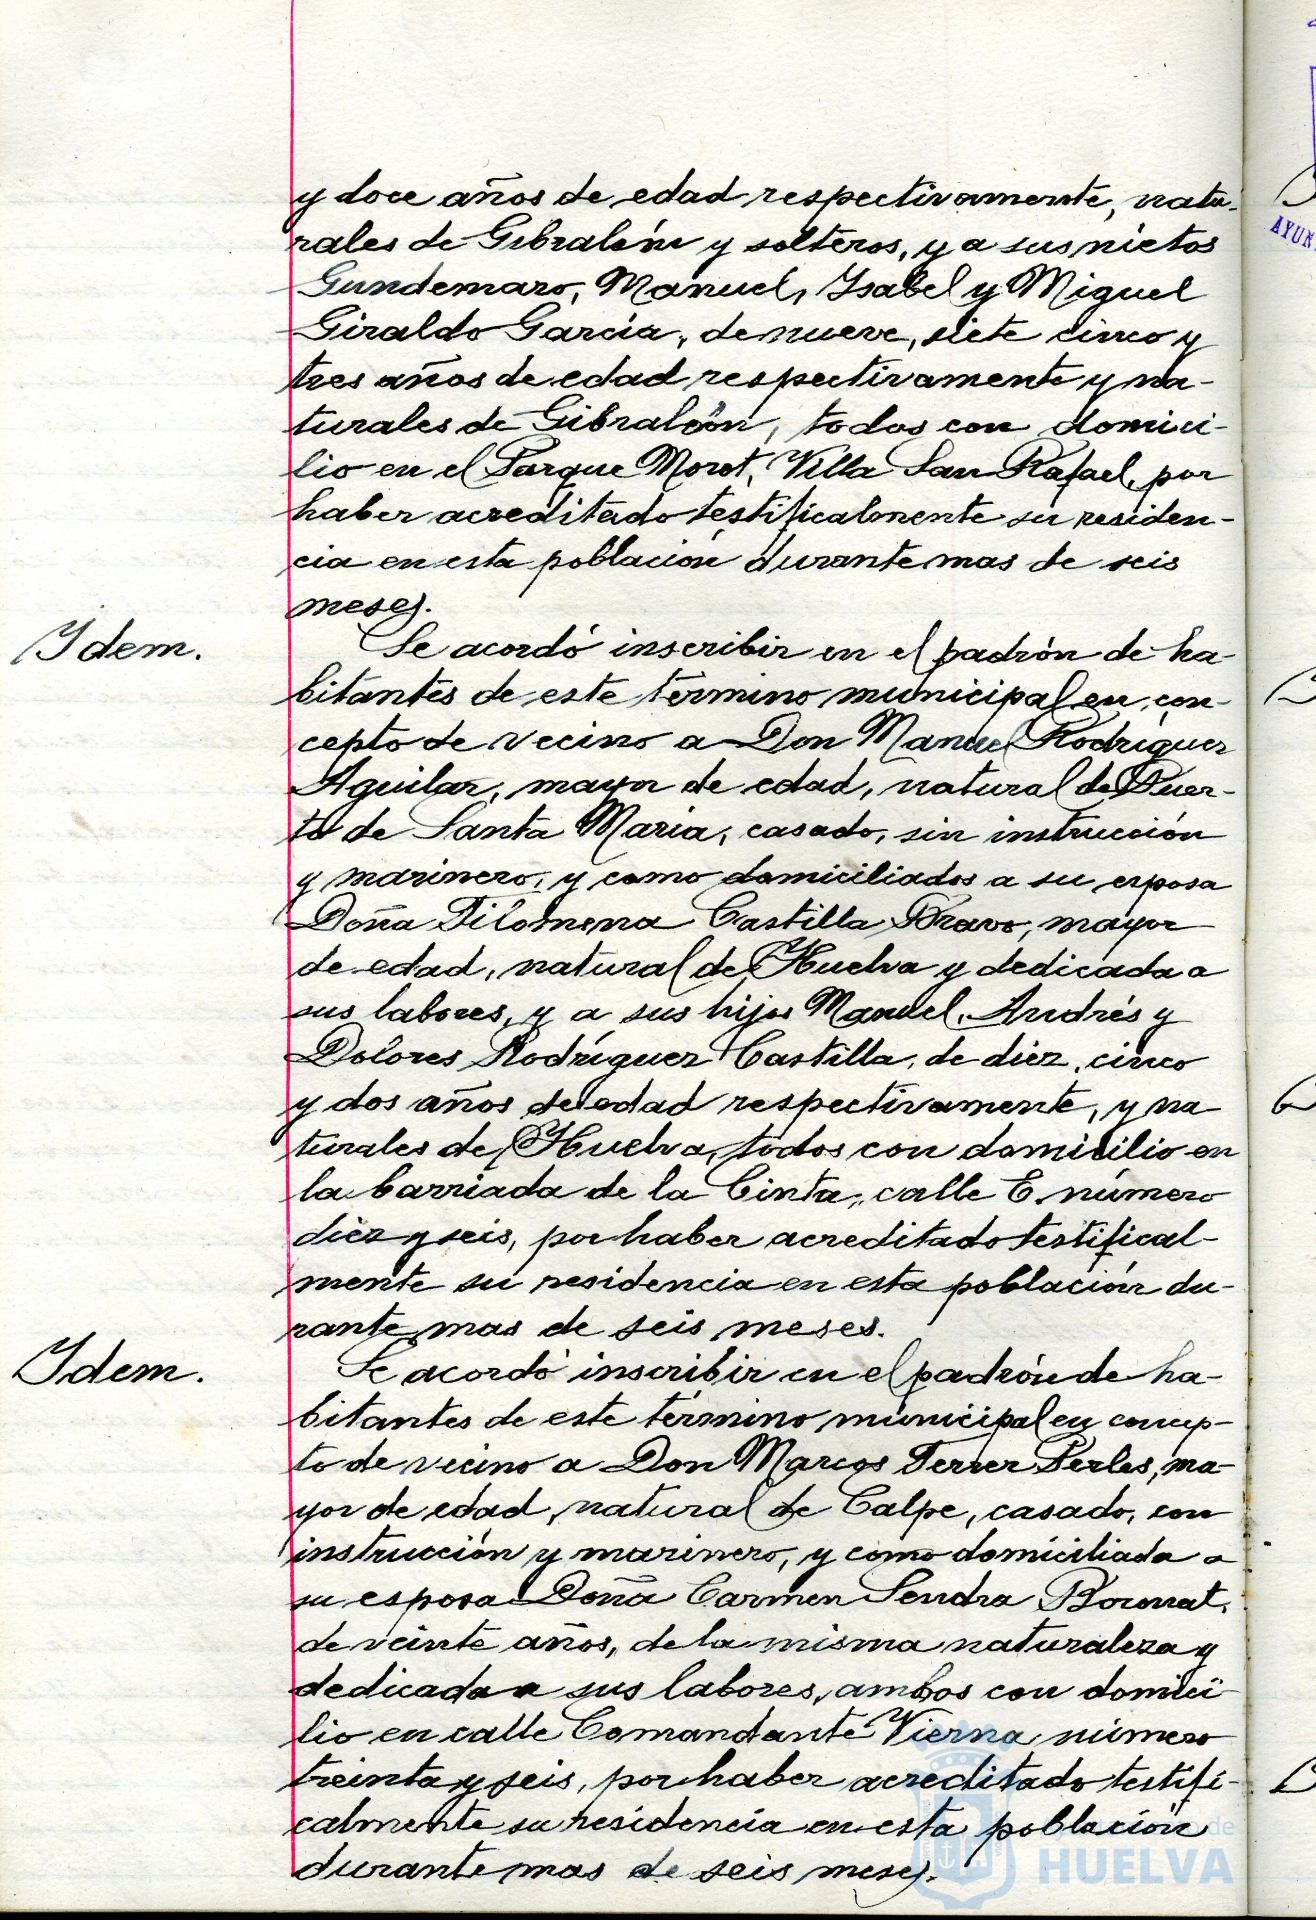 y doce años de edad respectivamente, natu-
rales de Gibraleón y solteros, y a sus nietos
Gundemaro, Manuel, Isabel y Miguel
Giraldo García, de nueve, siete cinco y
tres años de edad respectivamente y na-
turales de Gibraleón, todos con domici-
lio en el Parque Moret, Villa San Rafael, por
haber acreditado testificalmente su residen-
cia en esta población durante mas de seis
meses.
Idem.
Se acordó inscribir en el padrón de ha-
bitantes de este término municipal en con-
cepto de vecino a Don Manuel Rodríguez
Aguilar, mayor de edad, natural de Puer-
to de Santa Maria, casado, sin instrucción
y marinero, y como domiciliados a su esposa
Doña Filomena Castilla Bravo, mayor
de edad, natural de Huelva y dedicada a
sus labores, y a sus hijos Manuel, Andrés y
Dolores Rodríguez Castilla, de diez, cinco
y dos años de edad respectivamente, y na-
turales de Huelva, todos con domicilio en
la barriada de la Cinta, calle E. número
diez y seis, por haber acreditado testifical-
mente su residencia en esta población du-
rante mas de seis meses.
Idem.
Se acordó inscribir en el padrón de ha-
bitantes de este término municipal en concep-
to de vecino a Don Marcos Ferrer Perles, ma-
yor de edad, natural de Calpe, casado, con
instrucción y marinero, y como domiciliada a
su esposa Doña Carmen Sendra Boronat,
de veinte años, de la misma naturaleza y
dedicada a sus labores, ambos con domici-
lio en calle Comandante Vierna número
treinta y seis, por haber acreditado testifi-
calmente su residencia en esta población
durante mas de seis meses.
HUELVA